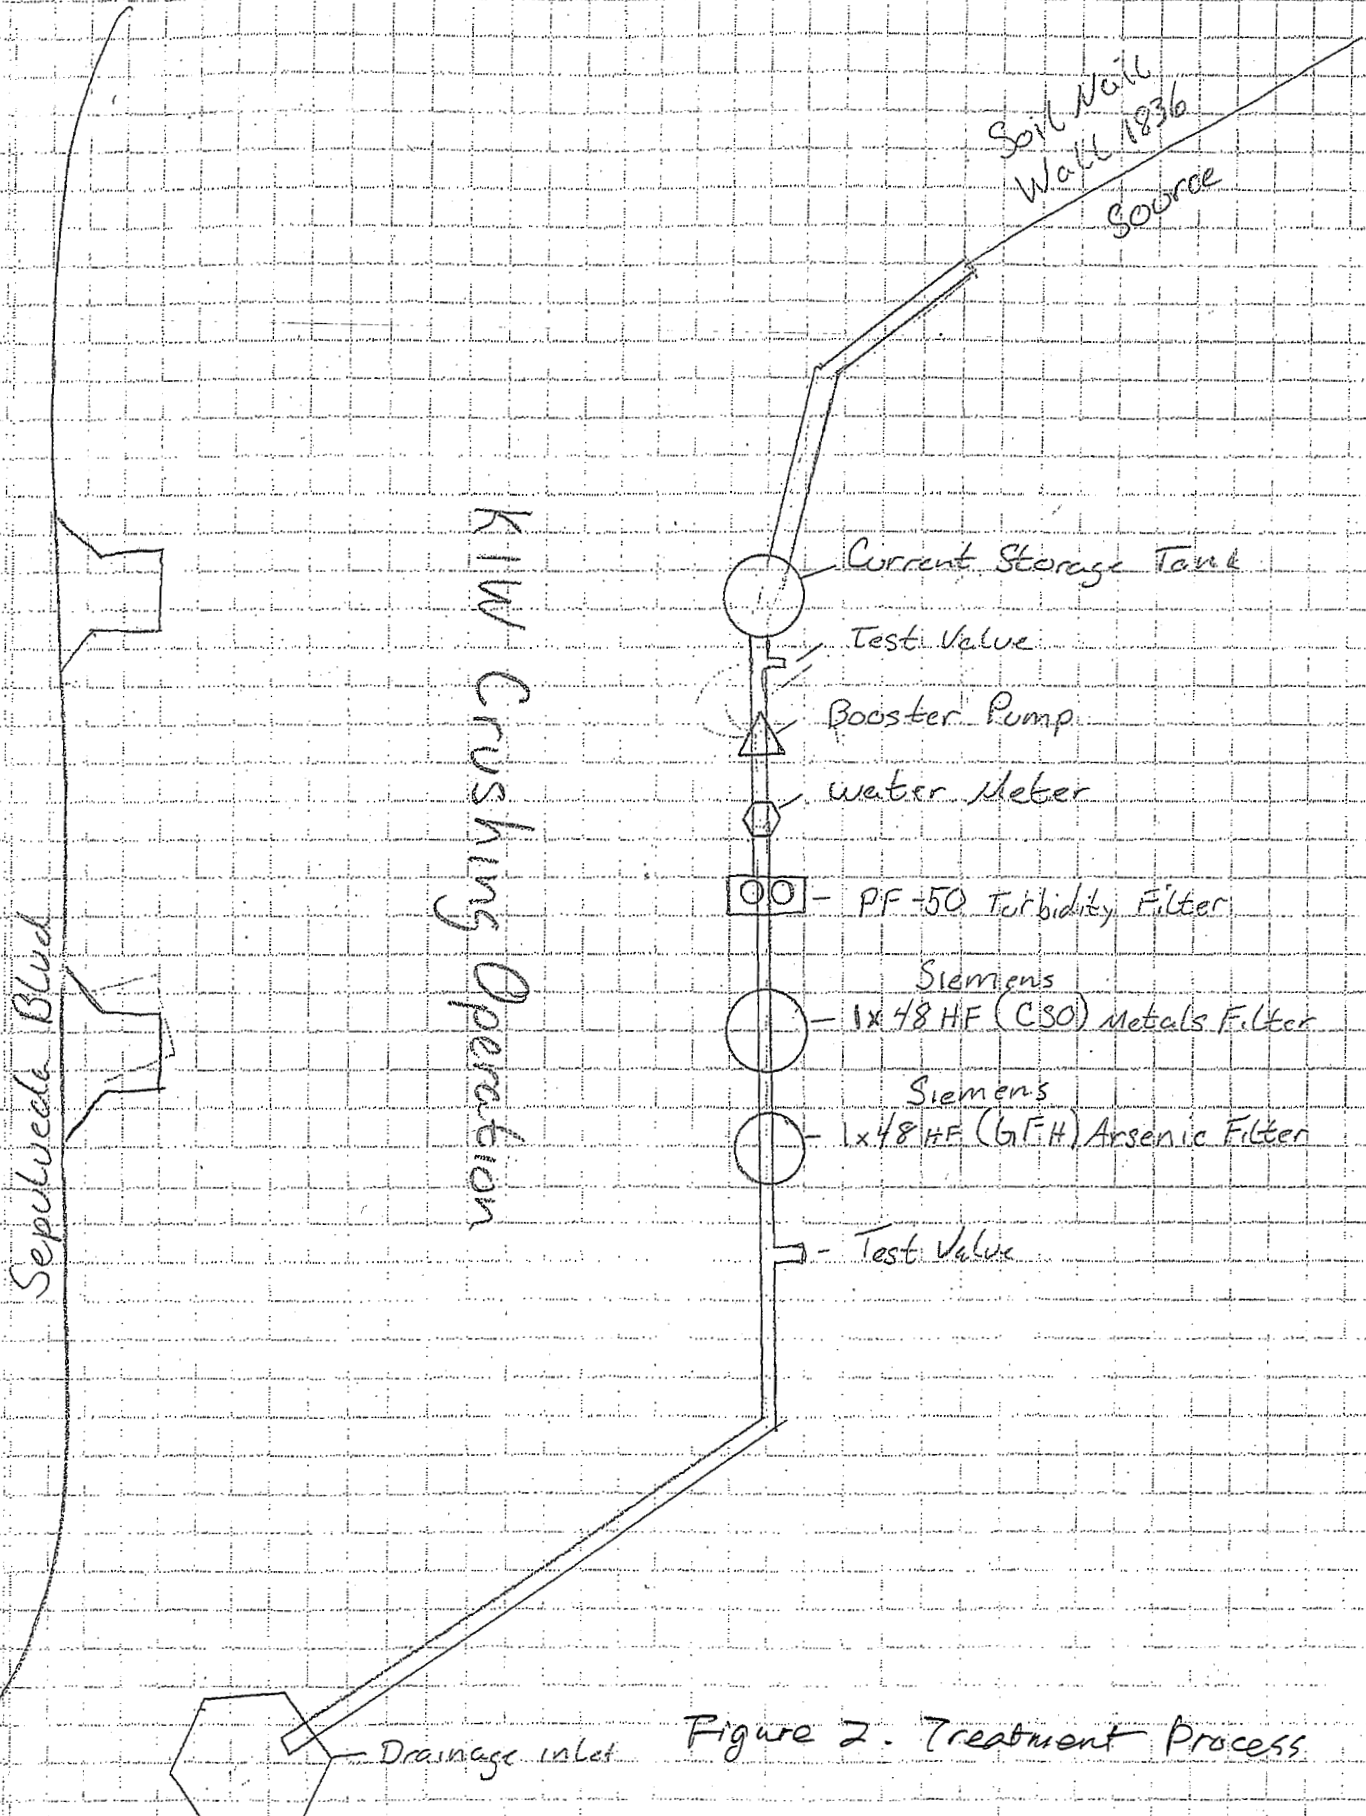 Soil Nail
Wall 1836
Source
Current Storage Tank
Test Valve
Booster Pump
Water Meter
PF-50 Turbidity Filter
Siemens
1x48 HF (CSO) Metals Filter
Siemens
1x48 HF (GFH) Arsenic Filter
Test Valve
KIW Crushing Operation
Sepulveda Blvd
Drainage inlet
Figure 2. Treatment Process